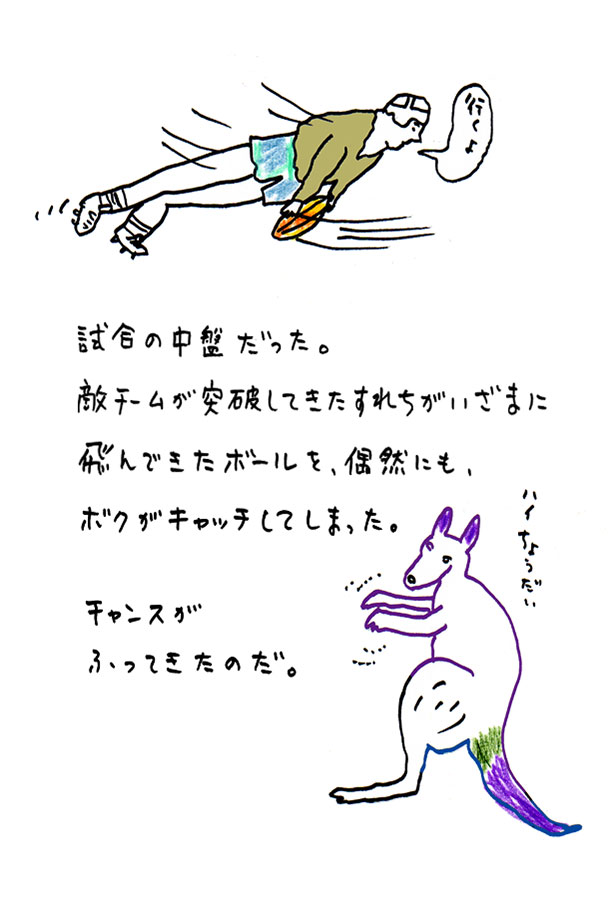 行くよ
試合の中盤だった。
敵チームが突破してきたすれちがいざまに
飛んできたボールを、偶然にも、
ボクがキャッチしてしまった。
ハイちょうだい
チャンスが
ふってきたのだ。